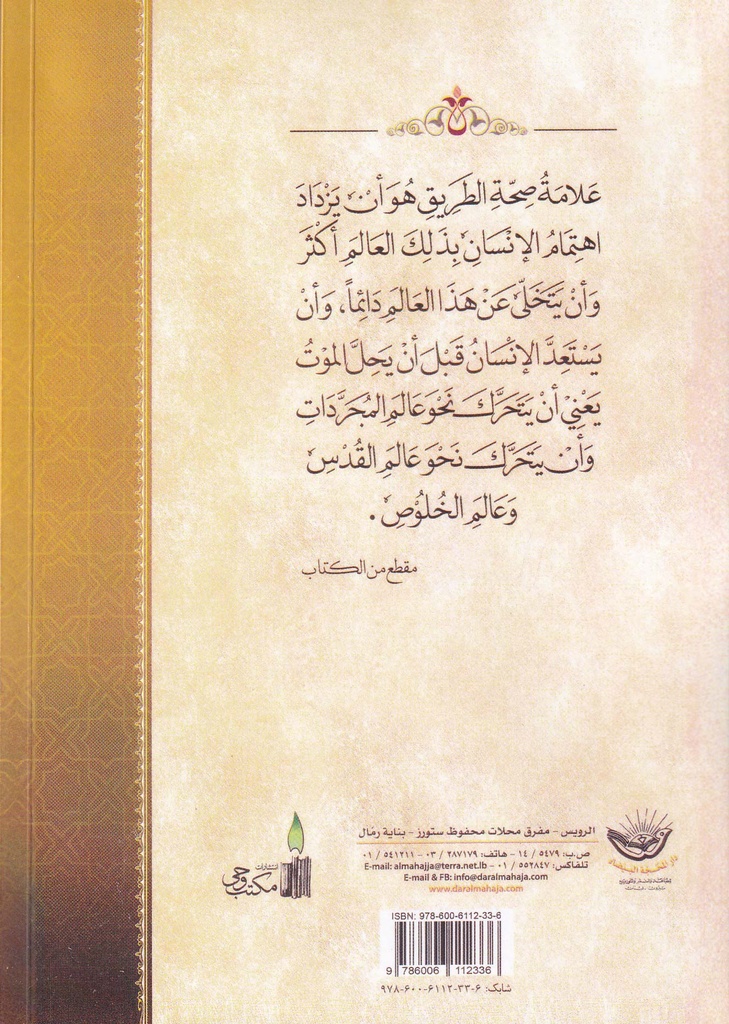 عَلامَةُ صِحّةِ الطَرِيقِ هُوَ أنْ يَزْدَادَ
اهتِمَامُ الإنْسَانِ بِذَلِكَ العَالَمِ أكْثَرَ
وَأنْ يَتَخَلّىَ عَنْ هَذَا العَالَمِ دَائِماً، وَأنْ
يَسْتَعِدَّ الإنْسَانُ قَبْلَ أنْ يَحِلَّ المَوْتُ
يَعْنِي أنْ يَتَحَرَّكَ نَحْوَ عَالَمِ المُجَرَّدَاتِ
وَأنْ يَتَحَرَّكَ نَحْوَ عَالَمِ القُدْسِ
وَعَالَمِ الخُلُوْصِ.
مقطع من الكتاب
الرويس - مفرق محلات محفوظ ستورز - بناية رمّال
ص.ب: ٥٤٧٩ / ١٤ - هاتف: ٢٨٧١٧٩ / ٠٣ - ٥٤١٢١١ / ٠١
تلفاكس: ٥٥٢٨٤٧ / ٠١ - E-mail: almahajja@terra.net.lb
E-mail & FB: info@daralmahaja.com
www.daralmahaja.com
دار المحجة البيضاء
انتشارات
مكتب وحى
ISBN: 978-600-6112-33-6
9 786006 112336
شابک: ۶-۳۳-۶۱۱۲-۶۰۰-۹۷۸